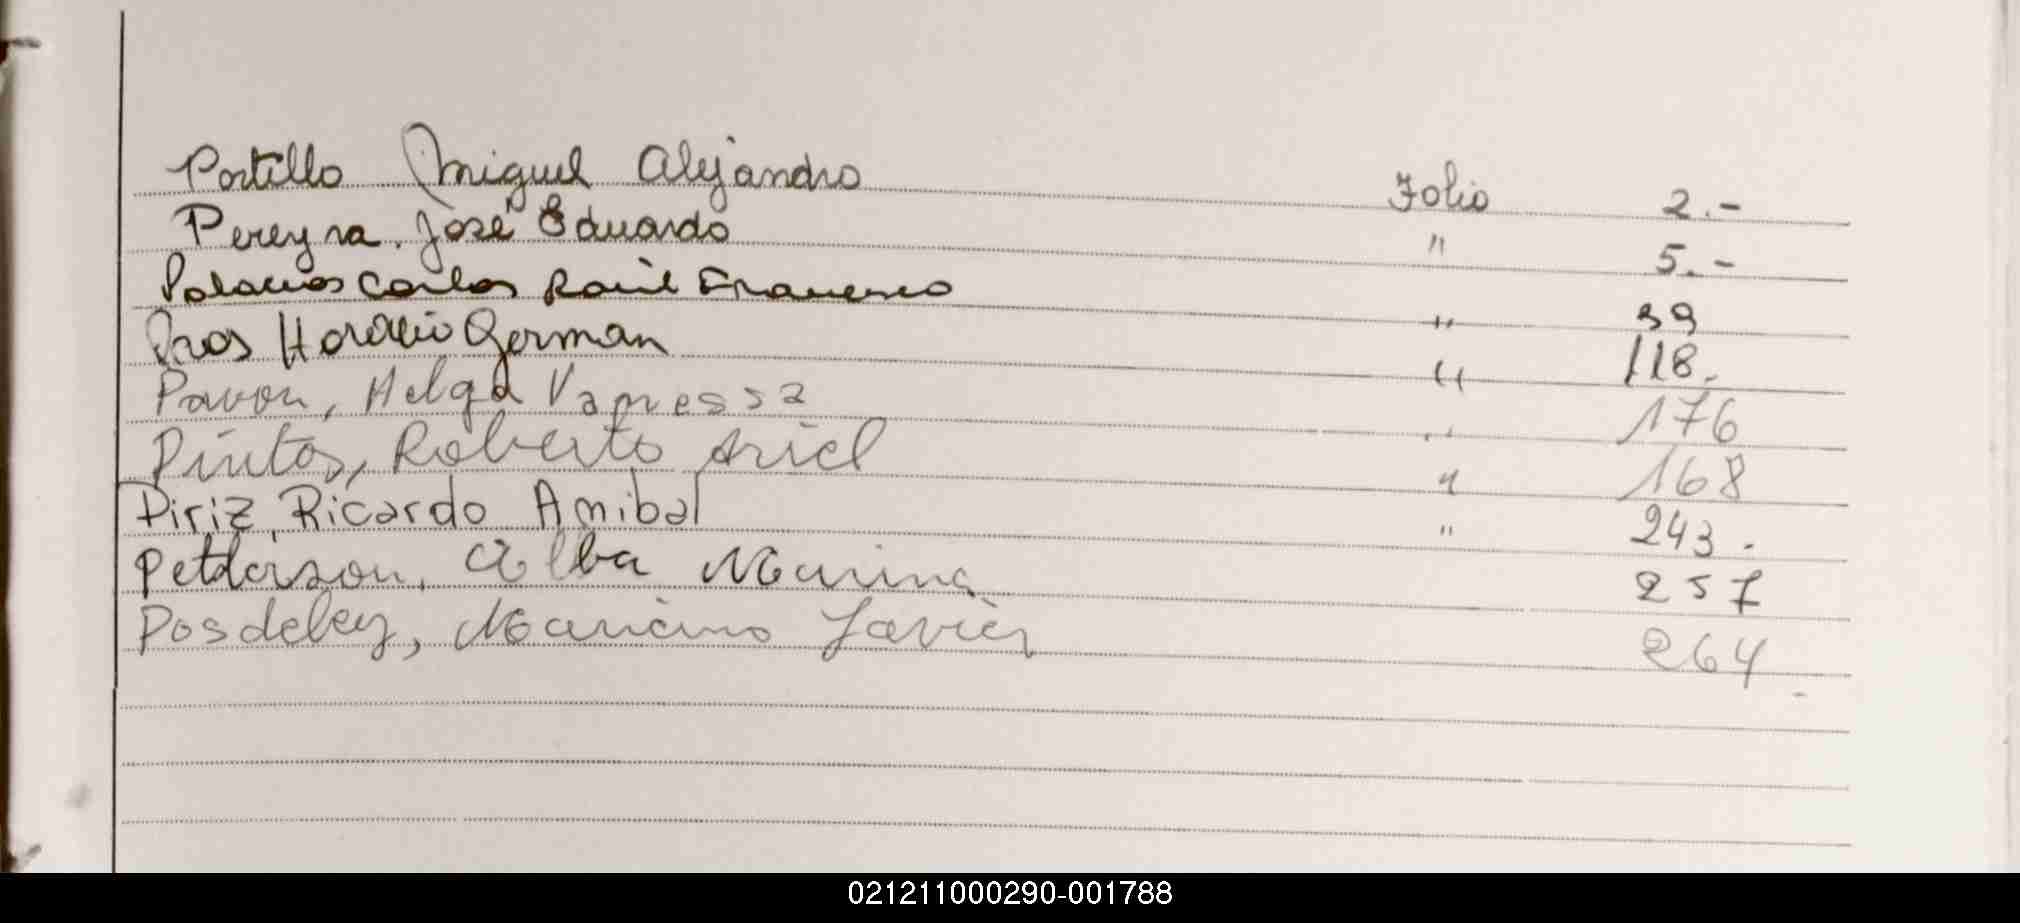 Portillo Miguel Alejandro Folio 2.-
Pereyra. José Eduardo " 5.-
Palacios Carlos Raúl Francisco " 39
Pros Horacio German " 118.
Pavon, Helga Vanessa " 176
Pintos, Roberto Ariel " 168
Piriz Ricardo Anibal " 243.
Petterson, Alba Marina 257
Posdeley, Mariano Javier 264
021211000290-001788